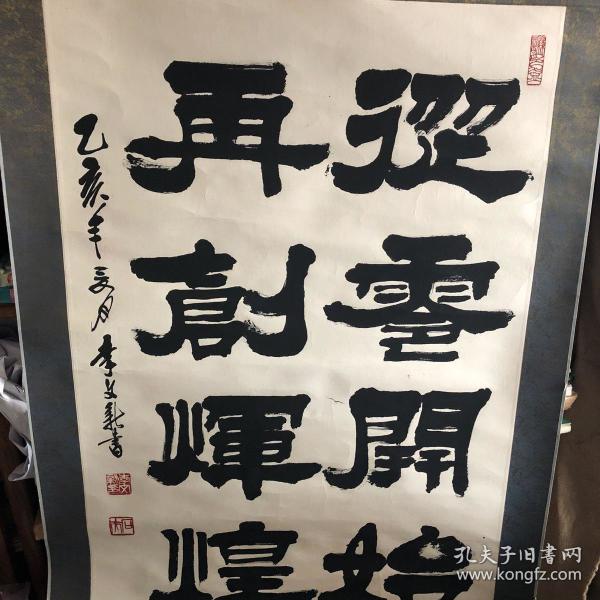 從零開始
再創輝煌
乙亥年夏月李文新書
孔夫子旧书网
www.kongfz.com